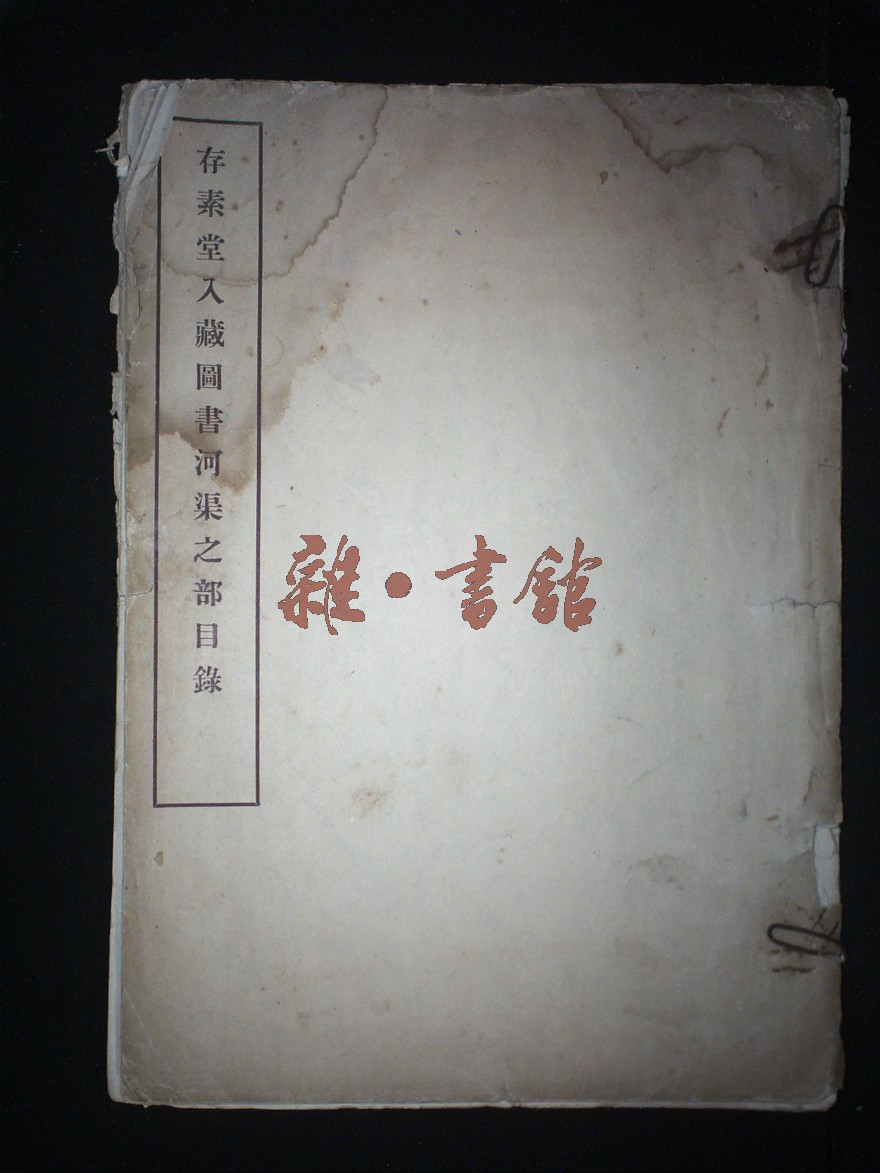 存素堂入藏圖書河渠之部目錄
雜·書館